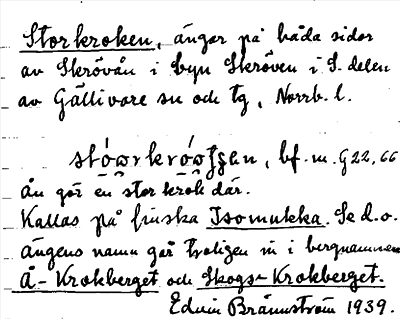 Storkroken, ängar på båda sidor
av Skrövån i byn Skröven i S. delen
av Gällivare sn och tg, Norrb. l.
bf. m. G22, 66
Ån gör en stor krok där.
Kallas på finska Isomukka. Se d. o.
ängens namn går troligen in i bergnamnen
Å-Krokberget och Skogs-Krokberget.
Edvin Brännström 1939.